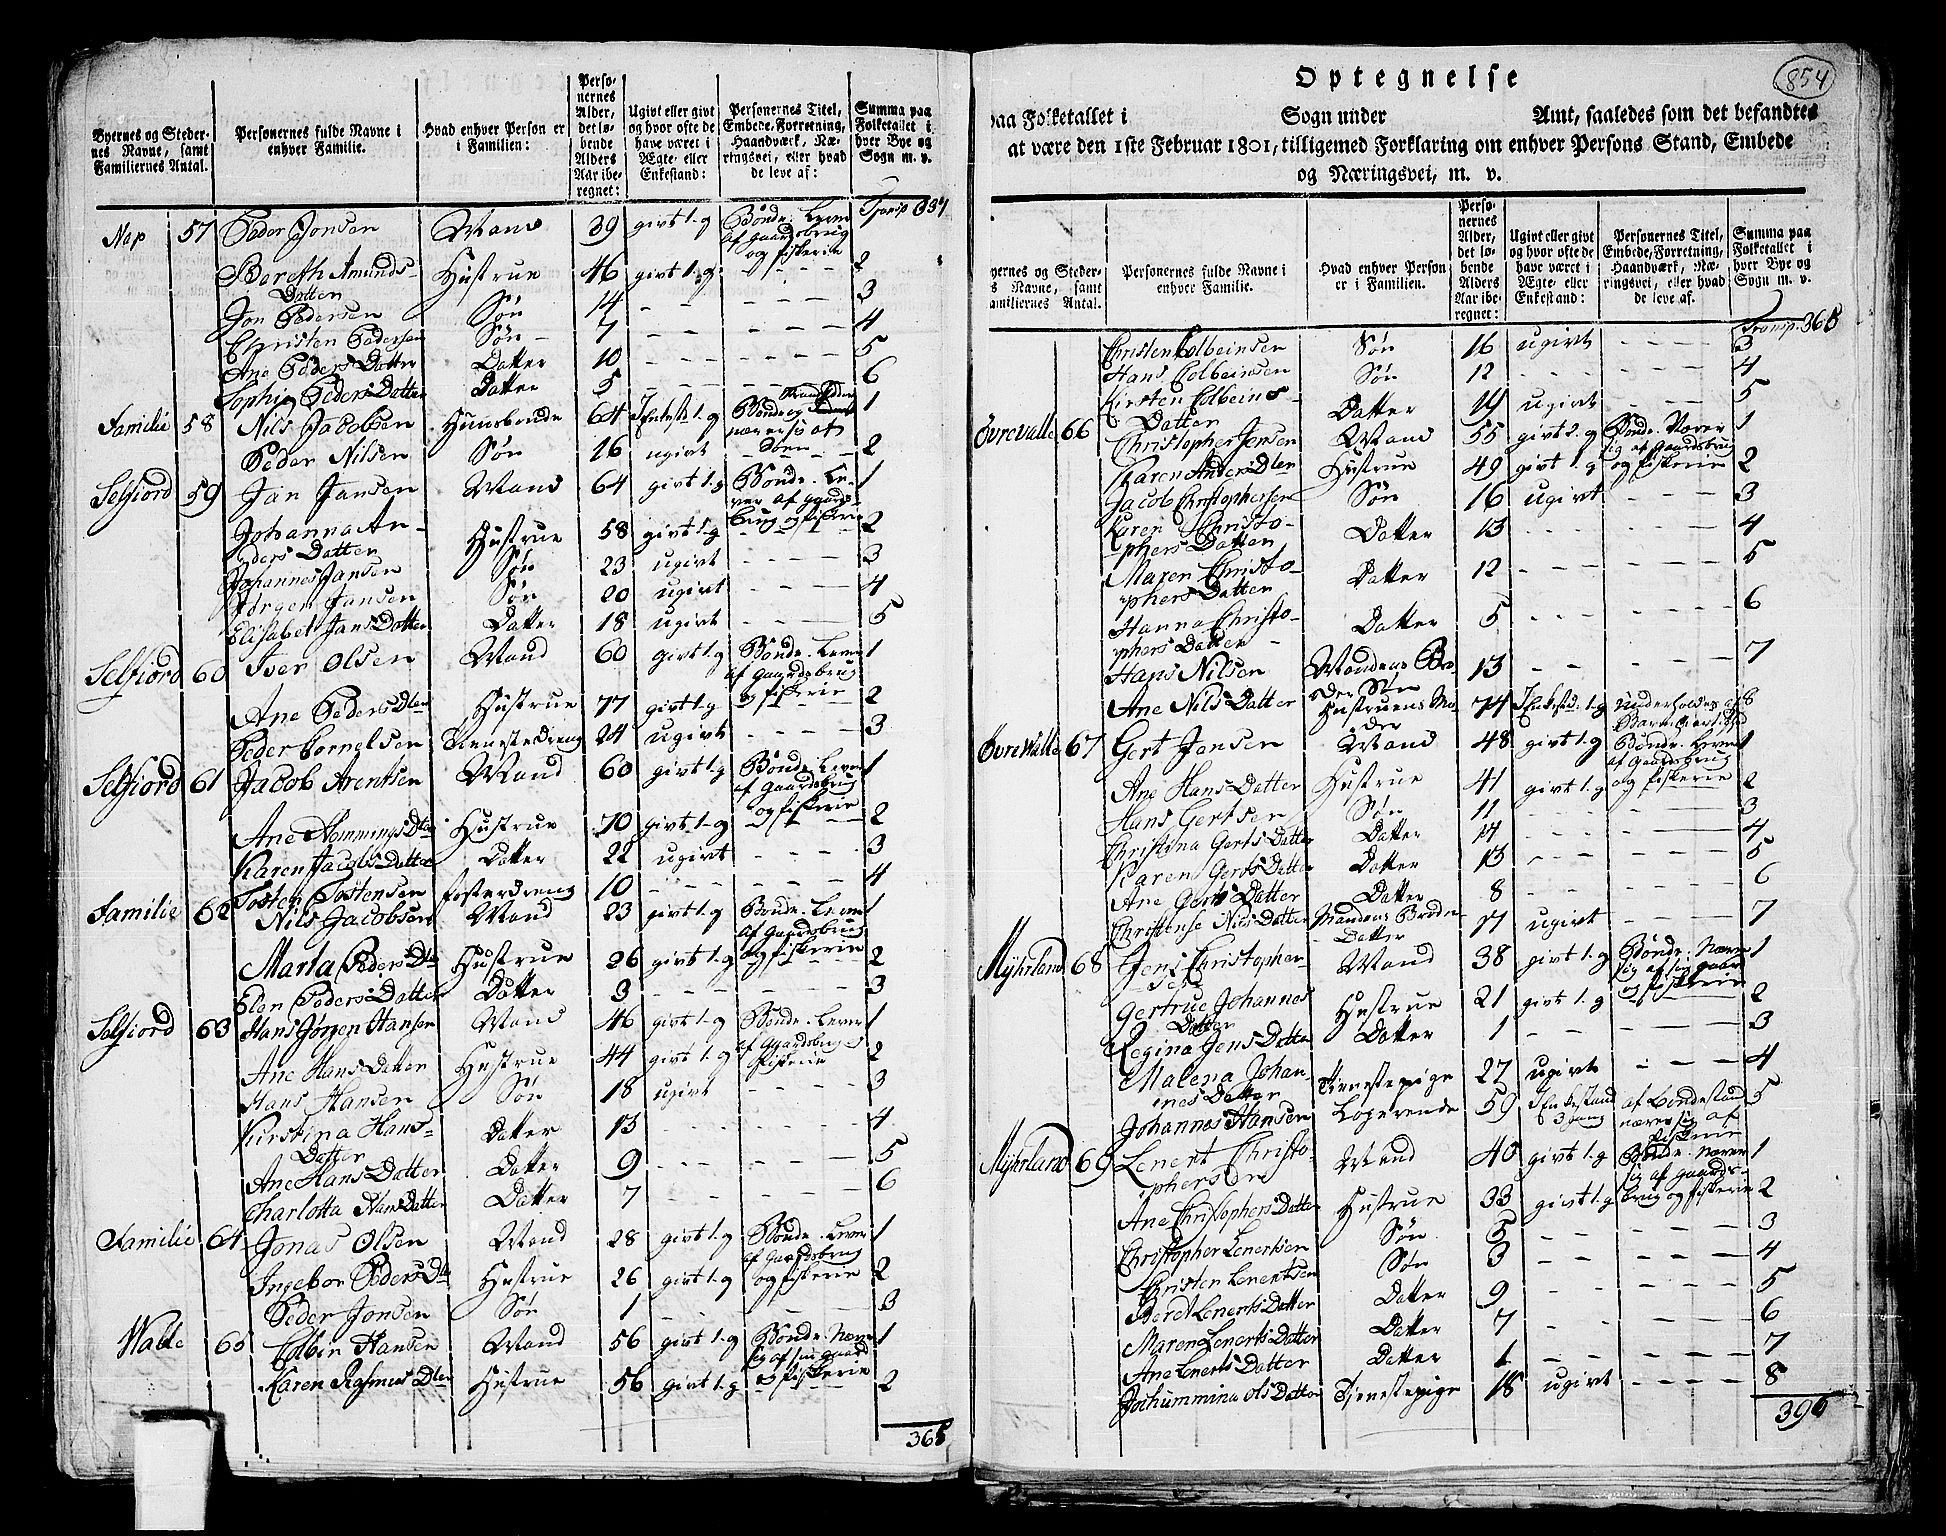 Byernes og Steder-
nes Navne, samt
Familiernes Antal.
Personernes fulde Navne i
enhver Familie.
Hvad enhver Person er
i Familien:
Perso-
nernes
Alder,
det lø-
bende
Alders
Aar ibe-
regnet:
Ugivt eller givt
og hvor ofte de
have været i
Ægte- eller
Enkestand:
Personernes Titel,
Embede, Forretning,
Haandværk, Næ-
ringsvei, eller hvad
de leve af:
Summa paa
Folketallet i
hver Bye og
Sogn m. v.
Transp 337
Nap 57 Peder Jonsen Mand 39 givt 1. g Bonde. Lever
af Gaardsbrug
og fiskerie
Bereth Amunds- Hustrue 46 givt 1. g - - - 2
Datter
Jon Pedersen Søn 14 - - - - 3
Christen Pedersen Søn 7 - - - - 4
Ane Peders Datter Datter 10 - - - - 5
Sophie Peders Datter Datter 5 - - - - 6
Familie 58 Nils Jacobsen Huusbonde 64 I Enkest: 1. g Bonde og 1
nærer sig af
Peder Nilsen Søn 26 ugivt - - - 2
Selfiord 59 Jan Jansen Mand 64 givt 1. g Bonde. Le- 1
ver af gaards-
brug og fiskerie
Johanna An- Hustrue 58 givt 1. g - - - 2
ders Datter
Johannes Jansen Søn 23 ugivt - - - 3
Jørgen Jansen Søn 20 ugivt - - - 4
Elisabet Jans Datter Datter 18 ugivt - - - 5
Selfiord 60 Iver Olsen Mand 60 givt 1. g Bonde. Lever 1
af Gaardsbrug
og fiskerie
Ane Peders Dter Hustrue 77 givt 1. g - - - 2
Peder Cornelsen Tienestedreng 24 ugivt - - - 3
Selfiord 61 Jacob Arentsen Mand 60 givt 1. g Bonde. Lever 1
af Gaardsbrug
og fiskerie
Ane Hemmings Dter Hustrue 70 givt 1. g - - - 2
Karen Jacobs Datter Datter 22 ugivt - - - 3
Tosten Tostensen fosterdreng 10 - - - - 4
Familie 62 Nils Jacobsen Mand 23 givt 1. g Bonde. Lever 1
af Gaardsbrug
og fiskerie
Marta Peders Dter Hustrue 26 givt 1. g - - - 2
Elen Peders Datter Datter 3 - - - - 3
Selfiord 63 Hans Jørgen Hansen Mand 46 givt 1. g Bonde. Lever 1
af Gaardsbrug
fiskerie
Ane Hans Datter Hustrue 44 givt 1. g 2
Hans Hansen Søn 18 ugivt - - - 3
Kirstina Hans- Datter 13 - - - - 4
Datter
Ane Hans Datter Datter 9 - - - - 5
Charlotta Hans Datter Datter 7 - - - - 6
Familie 64 Jonas Olsen Mand 28 givt 1. g Bonde. Lever 1
af Gaardsbrug
og fiskerie
Ingebor Peders Dter Hustrue 26 givt 1. g 2
Peder Jonsen Søn 1 - - - - 3
Walle 65 Colbin Hansen Mand 56 givt 1. g Bonde. Nærer 1
sig af sin gaard
og fiskerie
Karen Rasmus Dter Hustrue 56 givt 1. g - - - 2
365
854
Optegnelse
paa Folketallet i Sogn under Amt, saaledes som det befandtes
at være den 1ste Februar 1801, tilligemed Forklaring om enhver Persons Stand, Embede
og Næringsvei, m. v.
yernes og Steder-
s Navne, samt
amiliernes Antal.
Personernes fulde Navne i
enhver Familie.
Hvad enhver Person
er i Familien.
Perso-
nernes
Alder,
det lø-
bende
Alders
Aar ibe-
regnet:
Ugivt eller givt
og hvor ofte de
have været i
Ægte- eller
Enkestand:
Personernes Titel,
Embede, Forretning,
Haandværk, Næ-
ringsvei, eller hvad
de leve af.
Summa paa
Folketallet i
hver Bye og
Sogn m. v.
Transp. 365
Christen Colbeinsen Søn 16 ugivt - - - 3
Hans Colbeinsen Søn 12 - - - - 4
Kirsten Colbeins- Datter 19 ugivt - - - 5
Datter
Øvrevalle 66 Christopher Jensen Mand 55 givt 2. g Bonde. Nærer 1
sig af Gaardsbrug
Karen Anders Dter Hustrue 49 givt 1. g og fiskerie 2
Jacob Christophersen Søn 16 ugivt - - - 3
Karen Christo- Datter 13 - - - - 4
phers Datter
Maren Christo- Datter 12 - - - - 5
phers Datter
Hanna Christo- Datter 5 - - - - 6
phers Datter
Hans Nilsen Mandens Bro- 13 - - - - 7
der Søn
Ane Nils Datter Hustruens Mo- 74 I Enkest: 1. g Underholdes af 8
der
Øvrewalle 67 Gert Jansen Mand 48 givt 1. g Bonde. Lever 1
af Gaardsbrug
Ane Hans Datter Hustrue 41 givt 1. g og fiskerie 2
Hans Gertsen Søn 11 - - - - 3
Christina Gerts Datter Datter 17 - - - - 4
Karen Gerts Datter Datter 13 - - - - 5
Ane Gerts Datter Datter 8 - - - - 6
Christense Nils Datter Mandens Broder- 17 ugivt - - - 7
Datter
Myhrland 68 Jens Christopher- Mand 38 givt 1. g Bonde. Nærer 1
sen sig af sin gaard
og fiskerie
Gertrue Johannes Hustrue 21 givt 1. g - - - 2
Datter
Regina Jens Datter Datter 1 - - - - 3
Malena Johan- Tienestepige 27 ugivt - - - 4
nes Datter
Johannes Hansen Logerende 59 I Enkestand af bondestand 5
3 gang nærer sig af
fiskerie
Myhrland 69 Lenert Christo- Mand 40 givt 1. g Bonde. Nærer 1
phersen sig af gaards-
Ane Christophers Datter Hustrue 33 givt 1. g brug og fiskerie 2
Christopher Lenertsen Søn 5 - - - - 3
Christen Lenertsen Søn 3 - - - - 4
Beret Lenerts Datter Datter 9 - - - - 5
Maren Lenerts Datter Datter 7 - - - - 6
Ane Lenerts Datter Datter 1 - - - - 7
Johummina Ols Datter Tjenestepige 18 ugivt - - - 8
396